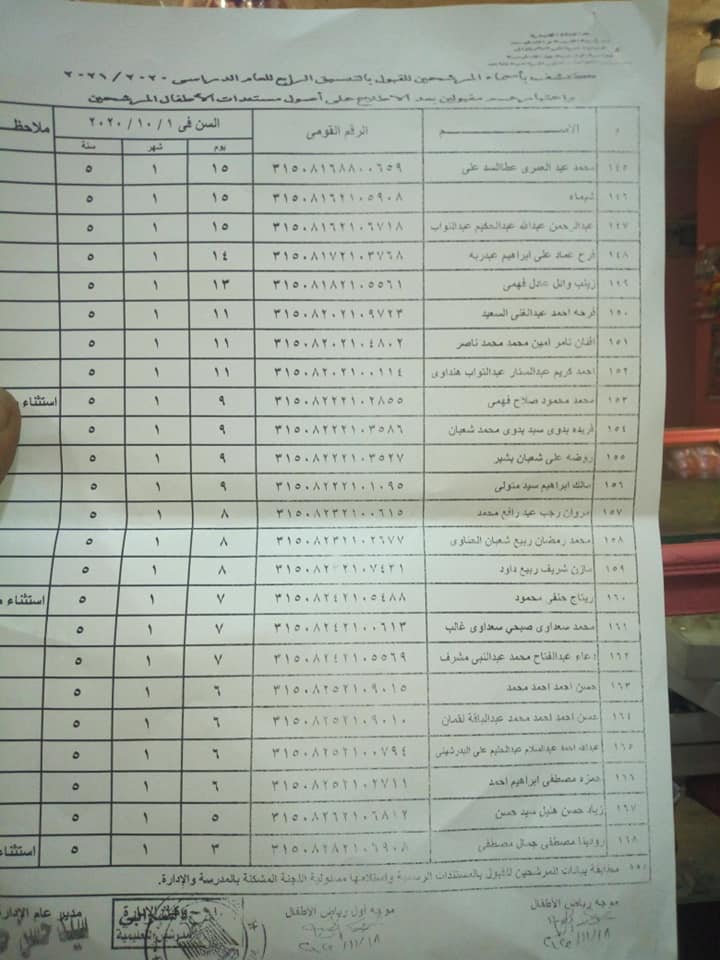 كشف بأسماء المرشحين للقبول بالتنسيق الرابع للعام الدراسى ٢٠٢٠/٢٠٢١
مقبولين بعد الاطلاع على أصول مستندات الأطفال المرشحين
م الاســـــــم الرقم القومى السن فى ١ / ١٠ / ٢٠٢٠ ملاحظ
يوم شهر سنة
١٤٥ محمد عيد العمرى على ٣١٥٠٨١٦٨٨٠٠٦٥٩ ١٥ ١ ٥
١٤٦ شيماء ٣١٥٠٨١٦٢١٠٥٩٠٨ ١٥ ١ ٥
١٤٧ عبدالرحمن عبدالله عبدالحكيم عبدالتواب ٣١٥٠٨١٦٢١٠٦٧١٨ ١٥ ١ ٥
١٤٨ فرح عماد على ابراهيم عبدربه ٣١٥٠٨١٧٢١٠٣٧٦٨ ١٤ ١ ٥
١٤٩ زينب وائل عادل فهمى ٣١٥٠٨١٨٢١٠٥٥٦١ ١٣ ١ ٥
١٥٠ فرحه احمد عبدالغنى السعيد ٣١٥٠٨٢٠٢١٠٩٧٢٣ ١١ ١ ٥
١٥١ افنان تامر امين محمد محمد ناصر ٣١٥٠٨٢٠٢١٠٤٨٠٢ ١١ ١ ٥
١٥٢ احمد كريم عبدالستار عبدالتواب هنداوى ٣١٥٠٨٢٠٢١٠٠١١٤ ١١ ١ ٥
١٥٣ محمد محمود صلاح فهمى ٣١٥٠٨٢٢٢١٠٢٨٥٥ ٩ ١ ٥ استثناء
١٥٤ فريده بدوى سيد بدوى محمد شعبان ٣١٥٠٨٢٢٢١٠٣٥٨٦ ٩ ١ ٥
١٥٥ روضه على شعبان بشير ٣١٥٠٨٢٢٢١٠٣٥٢٧ ٩ ١ ٥
١٥٦ مالك ابراهيم سيد متولى ٣١٥٠٨٢٢٢١٠١٠٩٥ ٩ ١ ٥
١٥٧ مروان رجب عيد رافع محمد ٣١٥٠٨٢٣٢١٠٠٦١٥ ٨ ١ ٥
١٥٨ محمد رمضان ربيع شعبان الحناوى ٣١٥٠٨٢٣٢١٠٢٦٧٧ ٨ ١ ٥
١٥٩ مازن شريف ربيع داود ٣١٥٠٨٢٣٢١٠٧٤٣١ ٨ ١ ٥
١٦٠ ريتاج حنفى محمود ٣١٥٠٨٢٤٢١٠٥٤٨٨ ٧ ١ ٥ استثناء
١٦١ محمد سعداوى صبحي سعداوى غالب ٣١٥٠٨٢٤٢١٠٠٦١٣ ٧ ١ ٥
١٦٢ دعاء عبدالفتاح محمد عبدالنبى مشرف ٣١٥٠٨٢٤٢١٠٥٥٦٩ ٧ ١ ٥
١٦٣ حسن احمد احمد محمد ٣١٥٠٨٢٥٢١٠٩٠١٥ ٦ ١ ٥
١٦٤ حسن احمد احمد محمد لقمان ٣١٥٠٨٢٥٢١٠٩٠١٠ ٦ ١ ٥
١٦٥ عبدالله احمد عبدالسلام عبدالحليم على البدرشينى ٣١٥٠٨٢٥٢١٠٠٧٩٤ ٦ ١ ٥
١٦٦ حمزه مصطفى ابراهيم احمد ٣١٥٠٨٢٥٢١٠٢٧١١ ٦ ١ ٥
١٦٧ زياد حسن سيد حسن ٣١٥٠٨٢٦٢١٠٦٨١٢ ٥ ١ ٥
١٦٨ رودينا مصطفى جمال مصطفى ٣١٥٠٨٢٨٢١٠٦٩٠٨ ٣ ١ ٥ استثناء
مطابقة بيانات المرشحين للقبول بالمستندات الرسمية واستلامها مسئولية اللجنة المشكلة بالمدرسة والإدارة.
موجه رياض الأطفال موجه أول رياض الأطفال مدير عام الإدارة